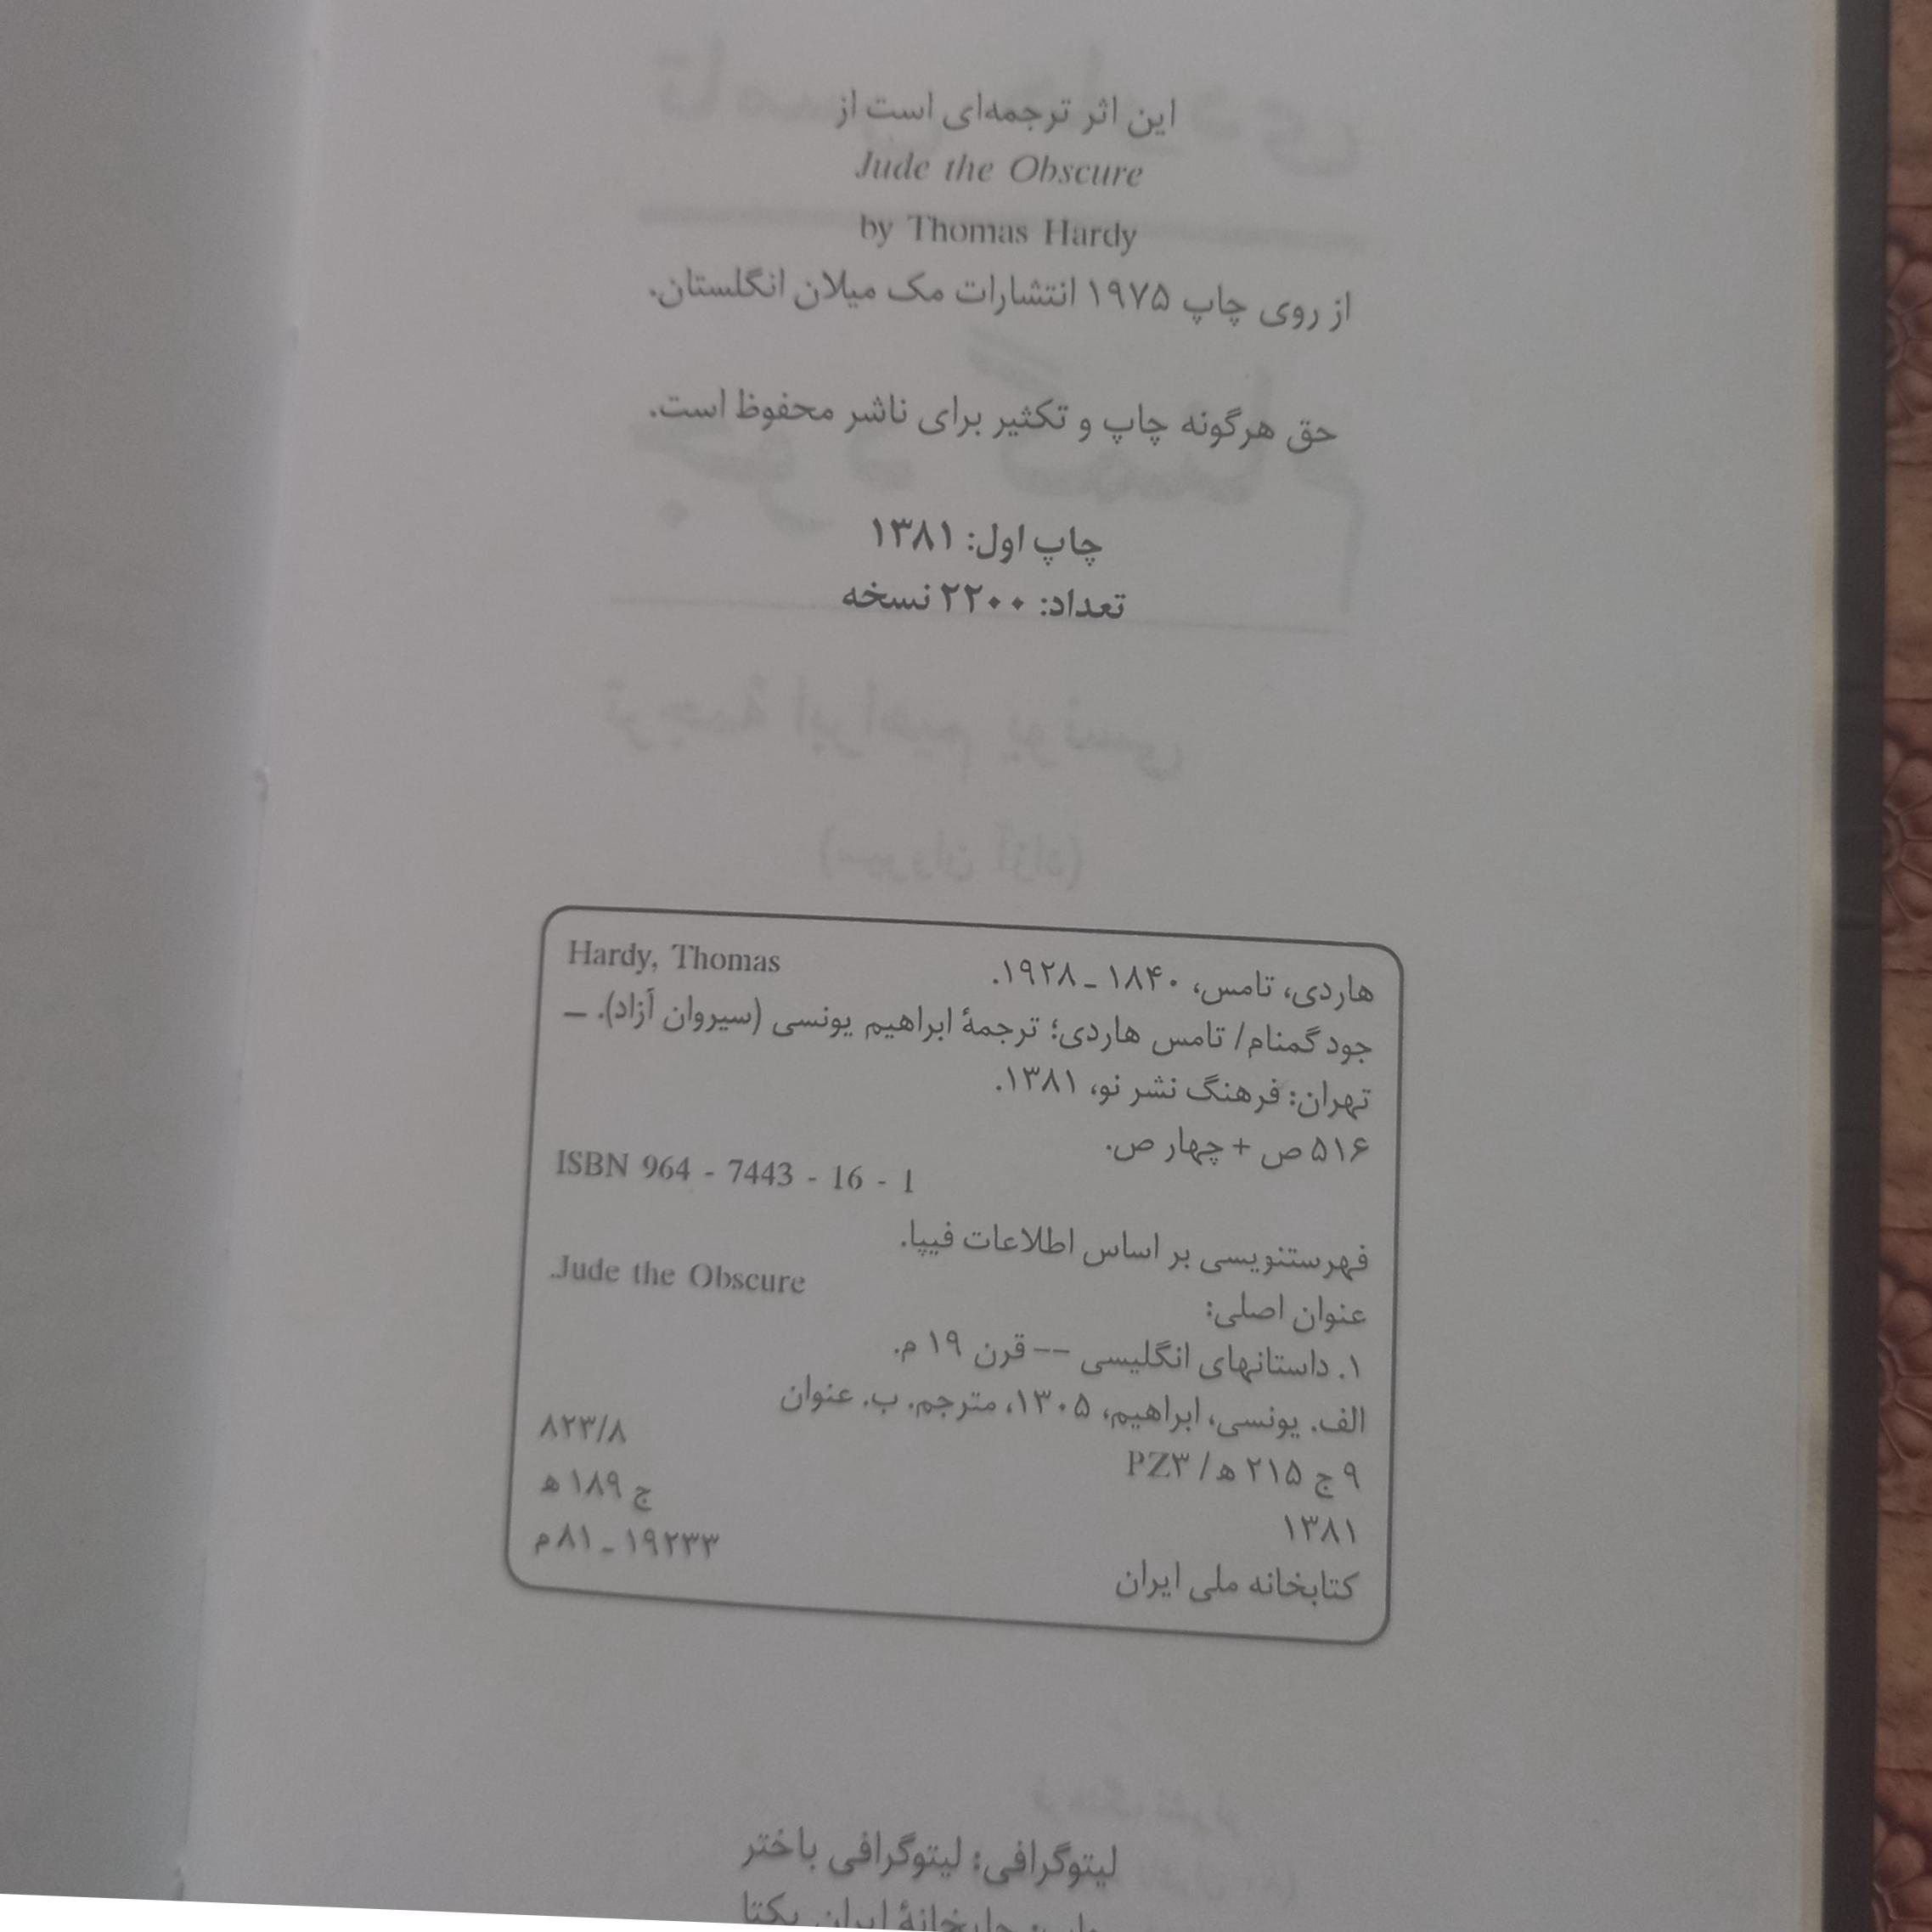 این اثر ترجمه‌ای است از
Jude the Obscure
by Thomas Hardy
از روی چاپ ۱۹۷۵ انتشارات مک میلان انگلستان.
حق هرگونه چاپ و تکثیر برای ناشر محفوظ است.
چاپ اول: ۱۳۸۱
تعداد: ۲۲۰۰ نسخه
هاردی، تامس، ۱۸۴۰ ـ ۱۹۲۸. Hardy, Thomas
جود گمنام/ تامس هاردی؛ ترجمهٔ ابراهیم یونسی (سیروان آزاد). ــ
تهران: فرهنگ نشر نو، ۱۳۸۱.
۵۱۶ ص + چهار ص.
ISBN 964 - 7443 - 16 - 1
فهرستنویسی بر اساس اطلاعات فیپا.
عنوان اصلی: Jude the Obscure.
۱. داستانهای انگلیسی -- قرن ۱۹ م.
الف. یونسی، ابراهیم، ۱۳۰۵، مترجم. ب. عنوان
۹ ج ۲۱۵ ه‍ / PZ۳ ۸۲۳/۸
۱۳۸۱ ج ۱۸۹ ه‍
کتابخانه ملی ایران ۱۹۲۳۳ ـ ۸۱ م
لیتوگرافی: لیتوگرافی باختر
چاپ: چاپخانهٔ ایران یکتا